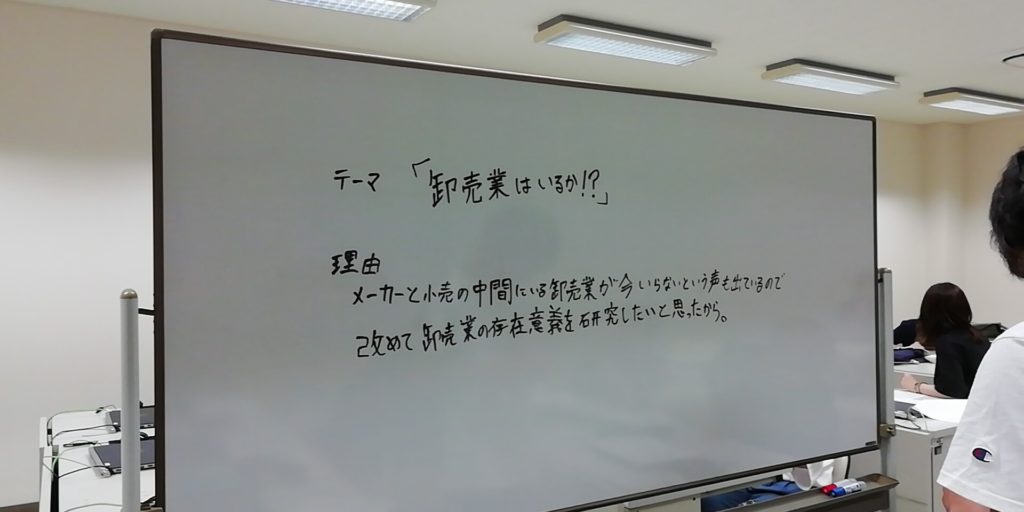 テーマ 「卸売業はいるか!?」
理由
メーカーと小売の中間にいる卸売業が今いらないという声も出ているので
改めて卸売業の存在意義を研究したいと思ったから。